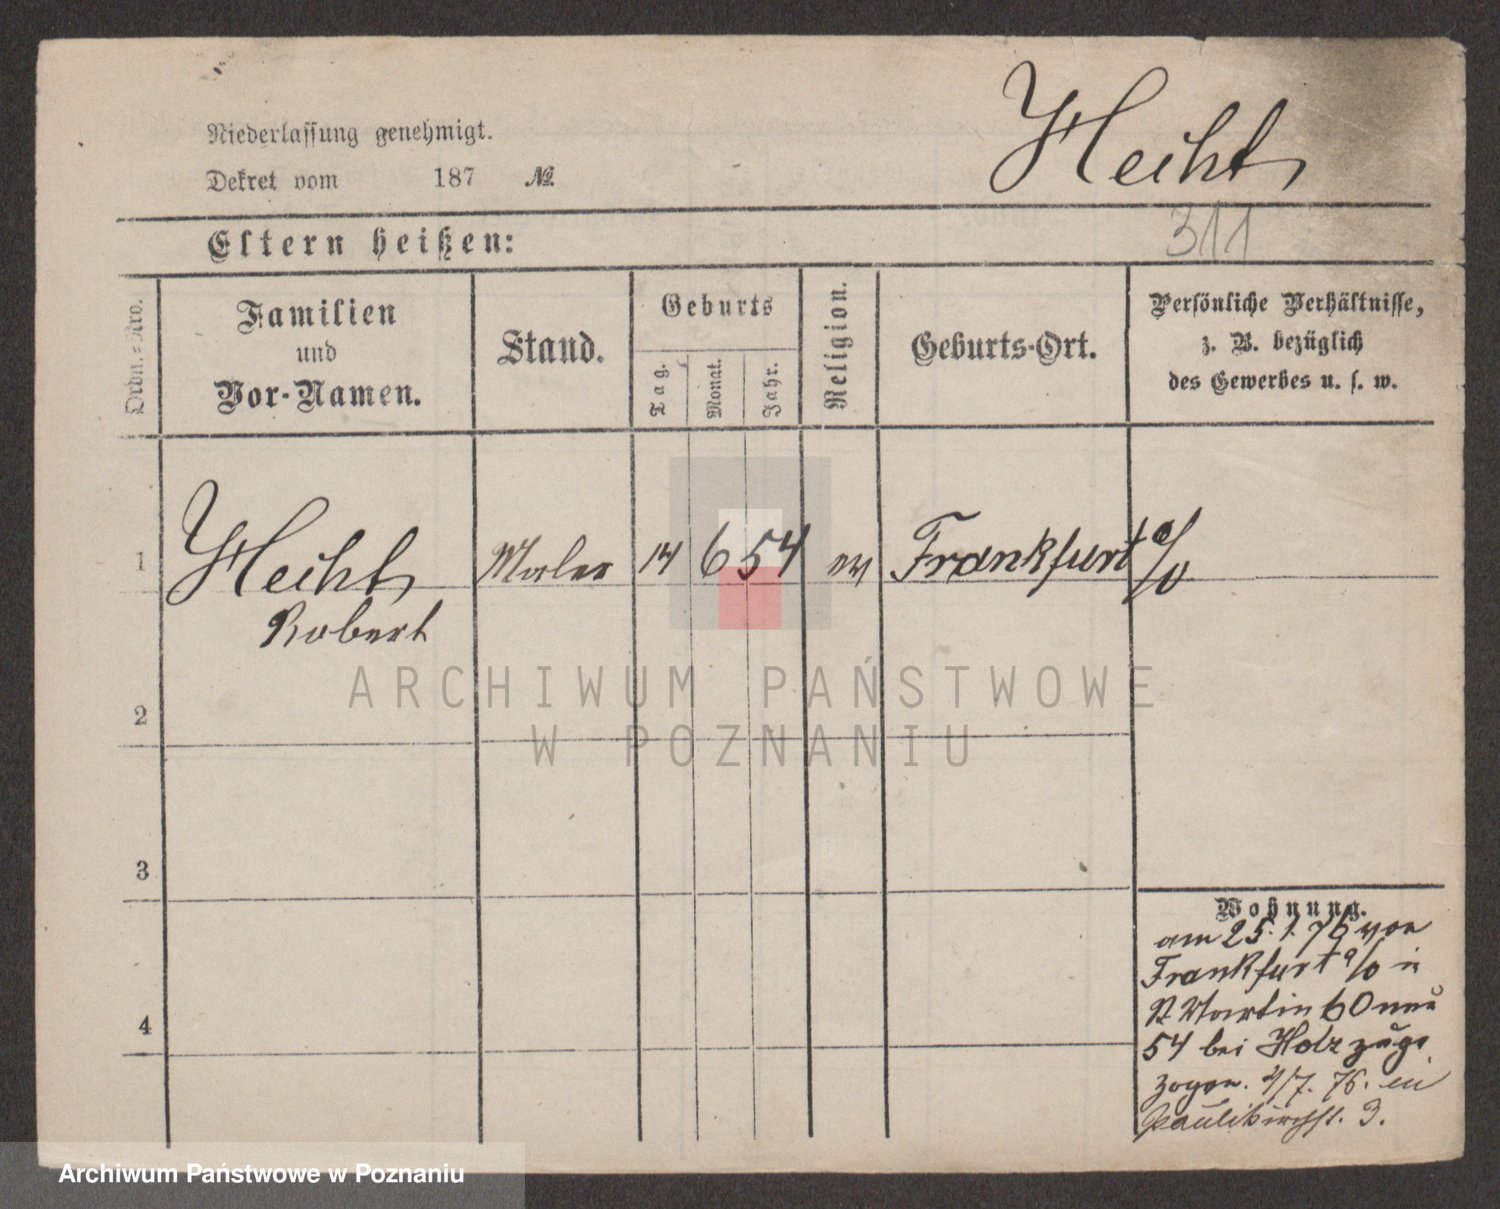 Hecht
Niederlassung genehmigt.
Dekret vom 187 №
311
Eltern heißen:
Ordn.-Nro.
Familien
und
Vor-Namen.
Stand.
Geburts
Tag.
Monat.
Jahr.
Religion.
Geburts-Ort.
Persönliche Verhältnisse,
z. B. bezüglich
des Gewerbes u. s. w.
1 Hecht Maler 14 6 54 ev Frankfurt a/O
Robert
2
3
4
Wohnung.
am 25. 1. 76 von
Frankfurt a/O in
St Martin 60 neu
54 bei Holz zuge
zogen. 4/7. 76. in
Paulikirchst. 3.
ARCHIWUM PAŃSTWOWE
W POZNANIU
Archiwum Państwowe w Poznaniu